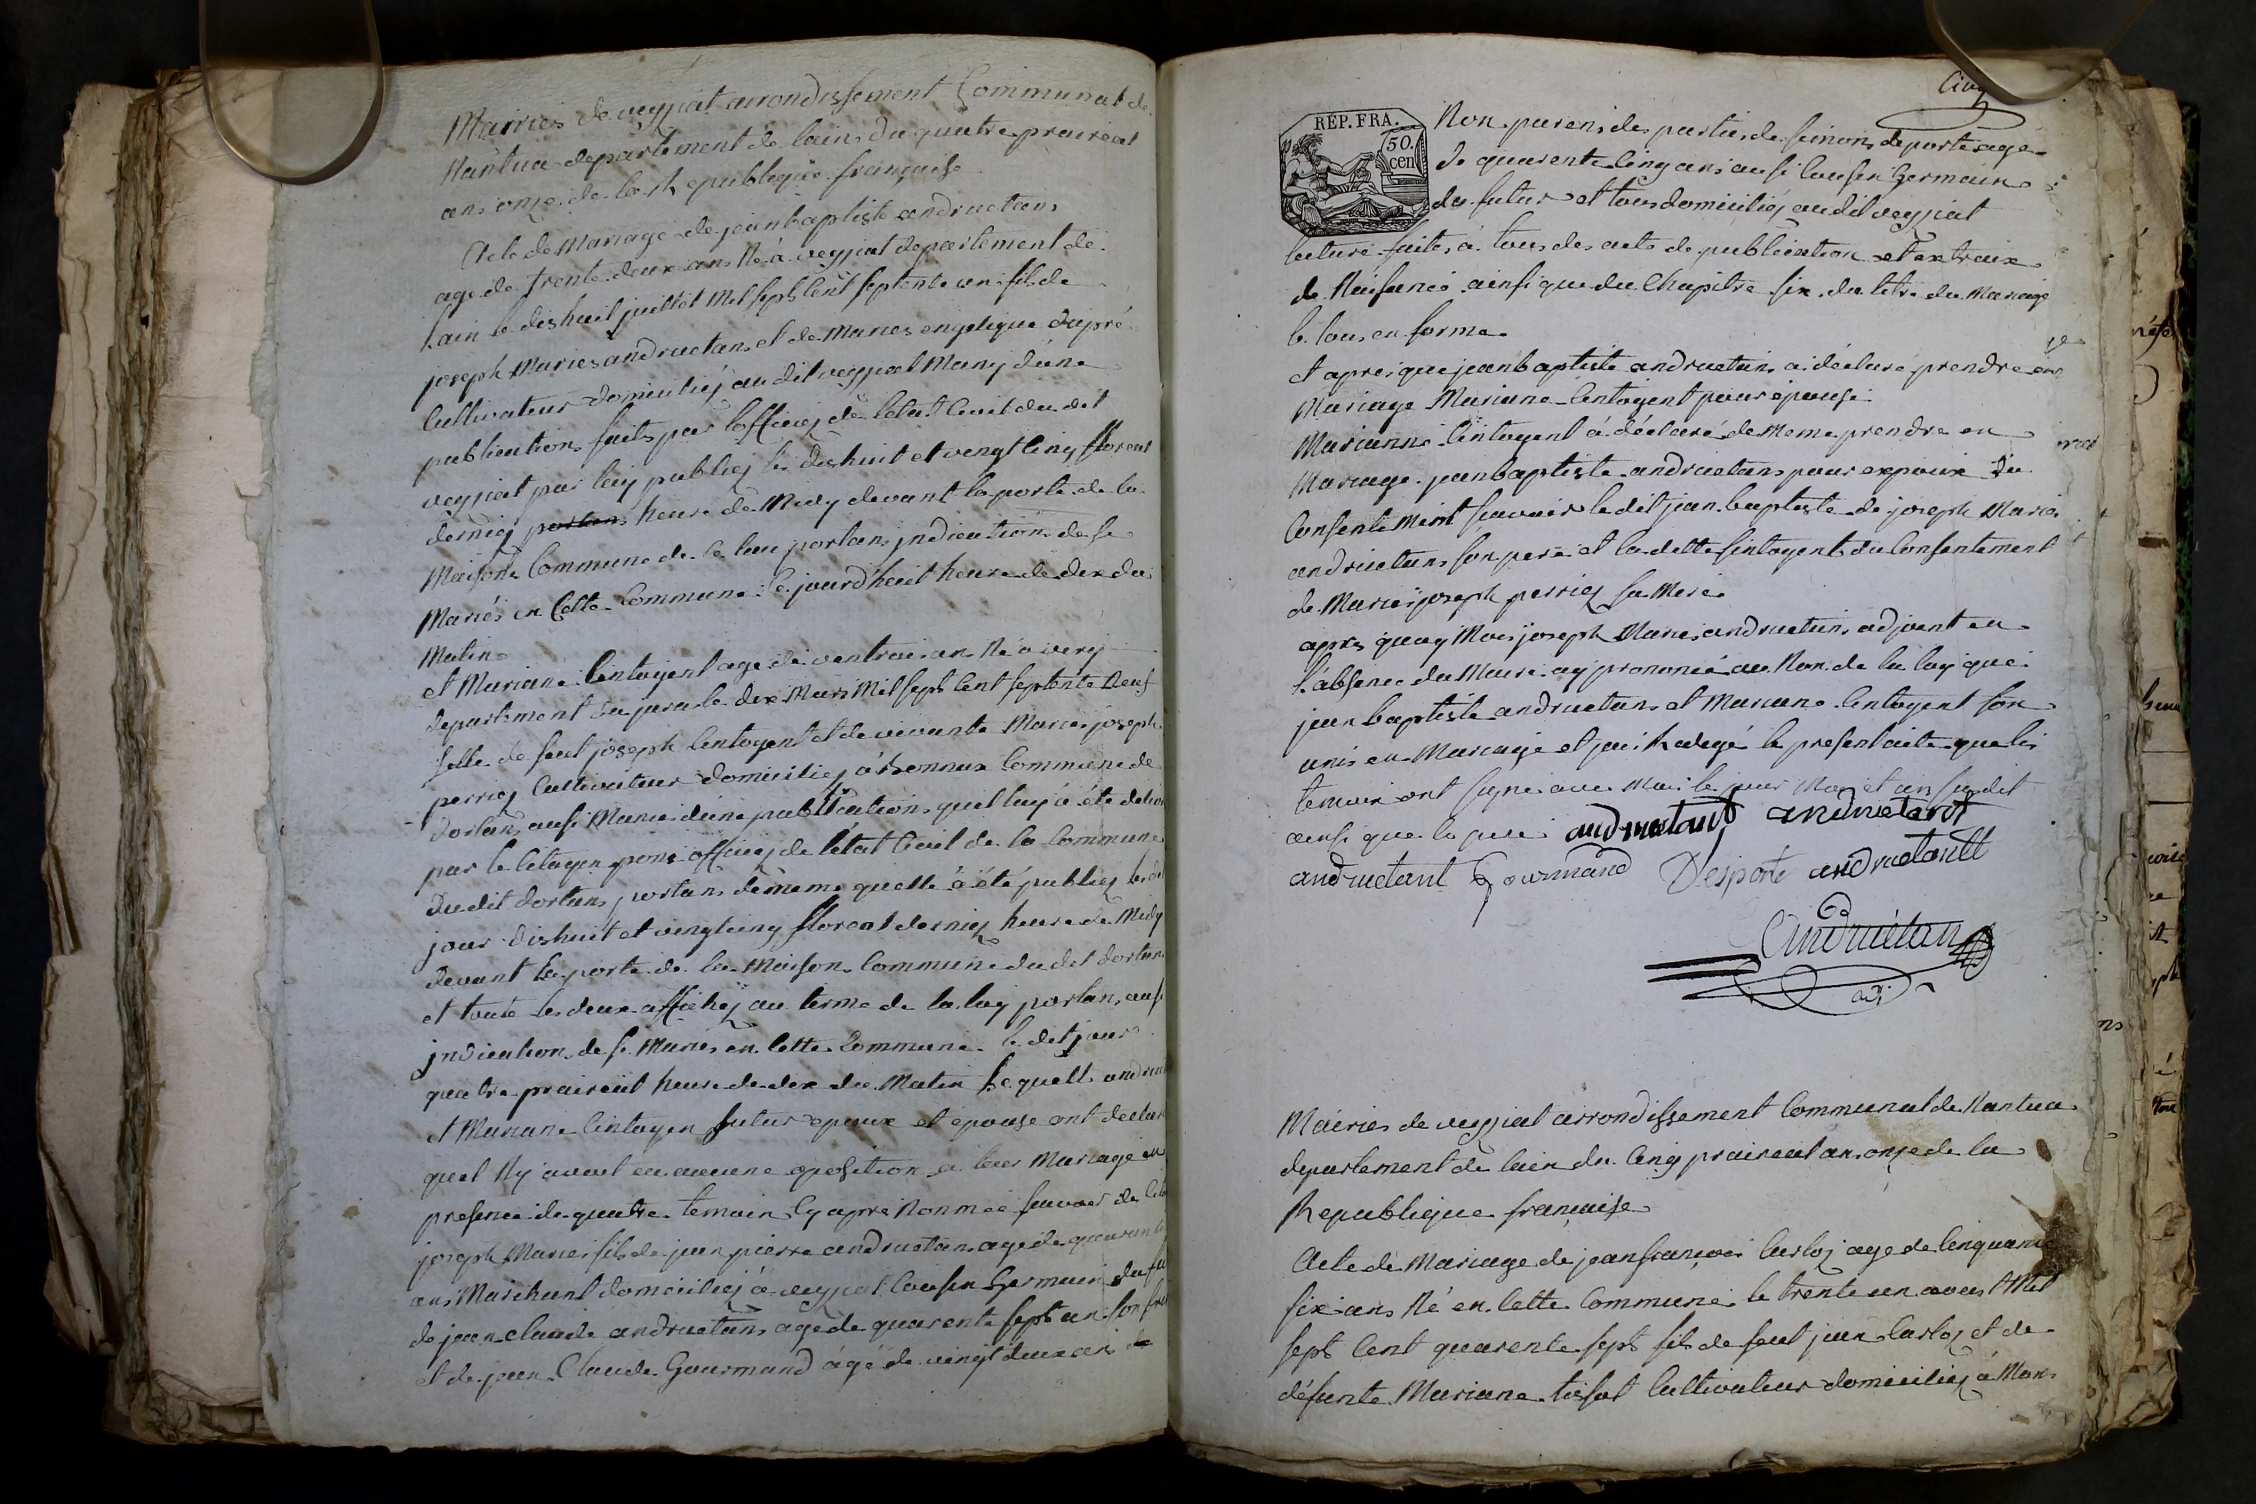 Mairies de veyziat arrondissement Communal de
Nantua departement de lains du quatre praireal
ans onze de la Republique française
Acte de Mariage de jean baptiste andruetans
age de trente deux ans Né à veyziat departement de
Lain le dishuit juillet Mil sept Cent septente un fils de
joseph Maries andruetans et de Maries engelique dupré
Cultivateur domiciliéz audit veyziat Muny d'une
publication faits par lofficiez de letat Civil du dit
veyziat par luy publiez les dishuit et vingt Cinq floreal
derniez heure de Midy devant la porte de la
Maison Commune de ce lieu portans jndication de se
Mariés en Cette Commune Ce jourd'huit heure de dix du
Matin
et Mariane Cintoyent age de ventrois an Né a
departement du jura le dix Mars Mil sept Cent septente Neuf
fille de feut joseph Centoyent et de vivante Maries joseph
perriez Cultivateur domiciliez à Commune de
dortans ausi Munie d'une publication quil luy à été
par le Citoyen ponc officiez de letat Civil de la Commune
Du dit dortans portans de meme quelle à été publiez les dit
jour dishuit et vingt cinq floreal derniez heure de Midy
devant la porte de la Maison Commune du dit dortans
et toute les deux affichéz au terme de la loy portans ausi
jndication de se Mariés en Cette Commune le dit jour
quatre praireal heure de dix du Matin Lequelle
et Mariane Cintoyen futur epoux et epouse ont declaré
quel Ny avoit eu aucune oposition a leur Mariage en
presence de quatre temoin Cy apre Nommée savoir de
joseph Maries fils de jean pierre andruetans age de quarante
ans Marchand domiciliez à veyziat Cousin Germain du
de jean claude andruetans agé de quarente sept an son
et de jean Claude Gourmand agé de vingt deux ans
Cinq
RÉP. FRA.
50.
cen
Non parens des parties de deporte age
de quarente Cinq ans ausi Cousin Germain
du futur et tous domiciliéz audit veyziat
lecture faites à tous des acte de publication et extraix
de Naisance ainsi que du Chapitre six du titre du Mariage
le tous en forme
et apres que jean baptiste andruetans a declaré prendre en
Mariage Mariane Centoyent pour epouse
Marianne Cintoyent à déclaré de Meme prendre en
Mariage jean baptiste andruetans pour expoux du
Consentement scavoir le dit jean baptiste de joseph Maries
andruetans son pere et la ditte Sintoyent du Consentement
de Maries joseph perriez sa Mere
apres quoy Moi joseph Maries andruetans adjoint en
L'absence du Maire ay prononcé au Non de la loy que
jean baptiste andruetans et Mariane Centoyent son
unis en Mariage et jai Redegé le present acte que les
temoin ont signé avec Moi le jour Mois et an susdit
ainsi que le pere andruetant andruetant
andruetant Gourmand Desporte andruetantt
Andruétan
adj
Mairies de veyziat arrondissement Communal de Nantua
departement de lain du Cinq praireal an onze de la
Republique française
Acte de Mariage de jean françois Carloz age de Cinquante
six ans Né en Cette Commune le trente un avout Mil
sept Cent quarente sept fils de feut jean Carloz et de
défunte Mariane tissot Cultivateur domiciliez à Mon